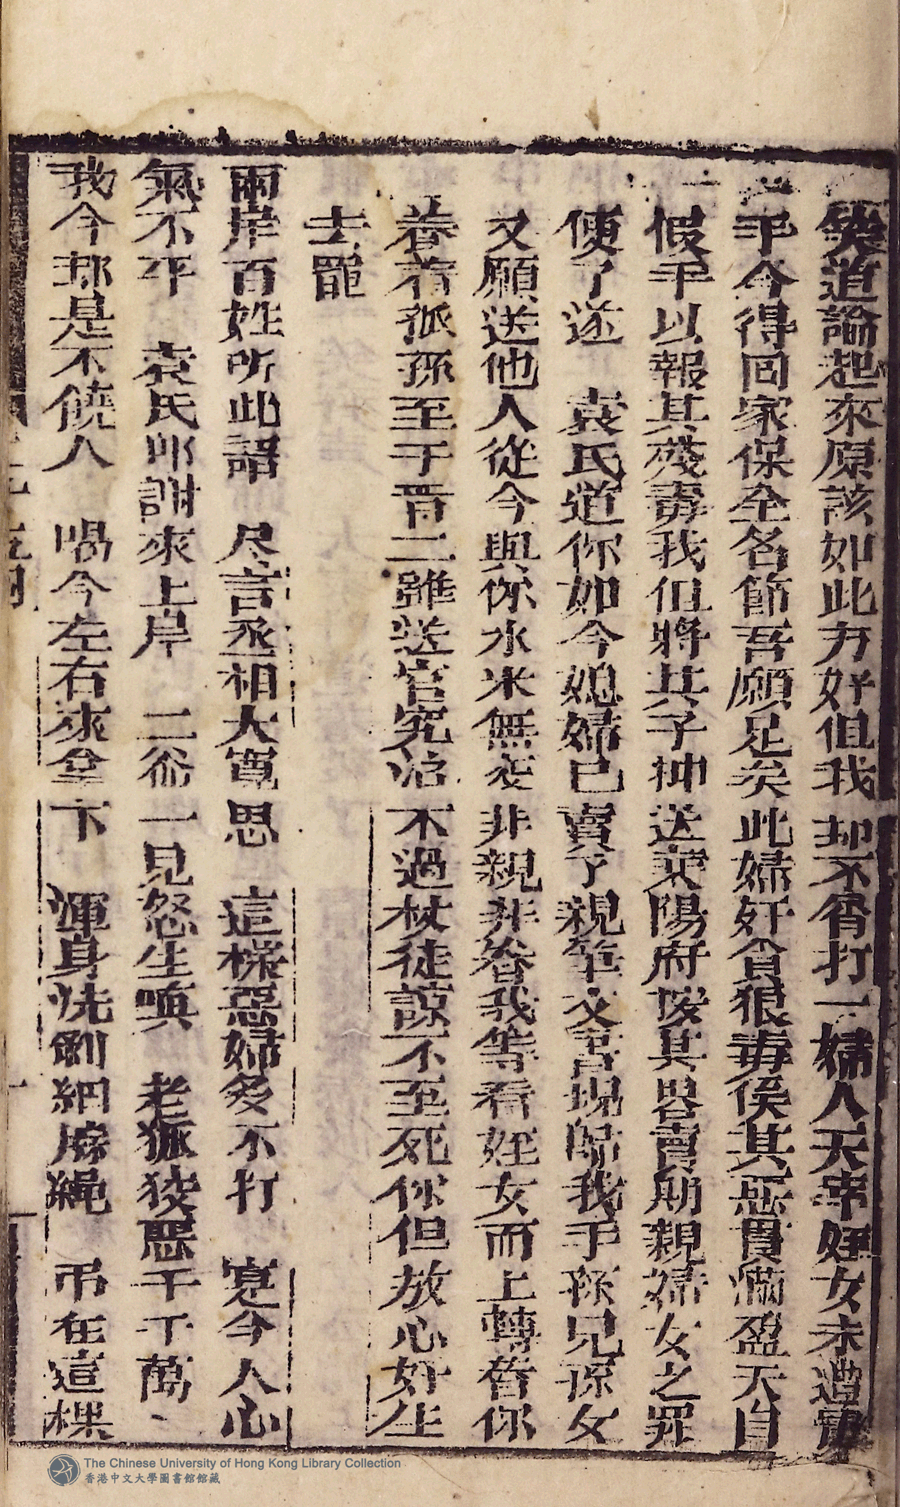 笑道論起來原該如此方好但我却不屑打一婦人天幸姪女未遭
手今得回家保全名節吾願足矣此婦奸貪狠毒俟其惡貫滿盈天自
假手以報其殘毒我但將其子抻送萊陽府按其畧賣期親婦女之罪
便了遂 袁氏道你如今媳婦已賣了親筆文書現歸我手孫兒孫女
又願送他人從今與你水米無交非親非眷我等看姪女而上轉眷你
養着孤孫至于晋二雖送官究治不過杖徒諒不至死你但放心好生
去罷
兩岸百姓所此語 尽言丞相大寬思 這樣惡婦多不打 寔今人心
氣不平 袁氏即謝來上岸 二爺一見怒生嗔 老狐狡惡千千萬、
我今却是不饒人 喝今左右來拿下 渾身洗剝綑麻繩 吊在這棵
The Chinese University of Hong Kong Library Collection
香港中文大學圖書館館藏